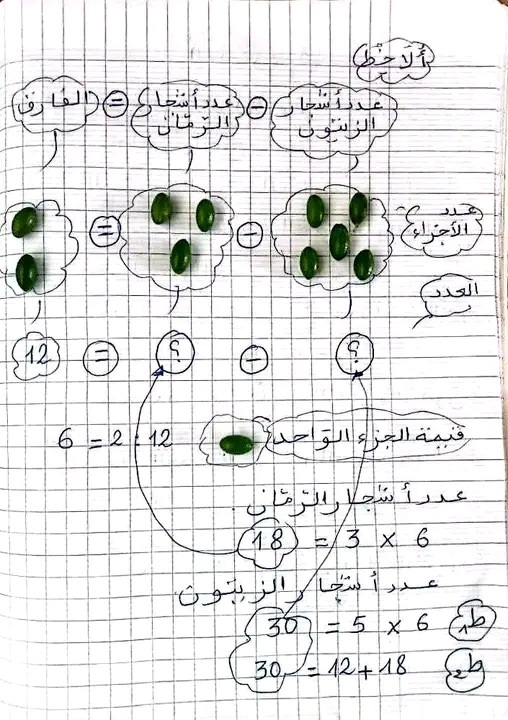 ألاحظ
عدد أشجار الزيتون - عدد أشجار الرمّان = الفارق
عدد الأجزاء - =
العدد
؟ - ؟ = 12
قيمة الجزء الواحد 12 : 2 = 6
عدد أشجار الرمّان
6 × 3 = 18
عدد أشجار الزيتون
ط1 6 × 5 = 30
ط2 18 + 12 = 30